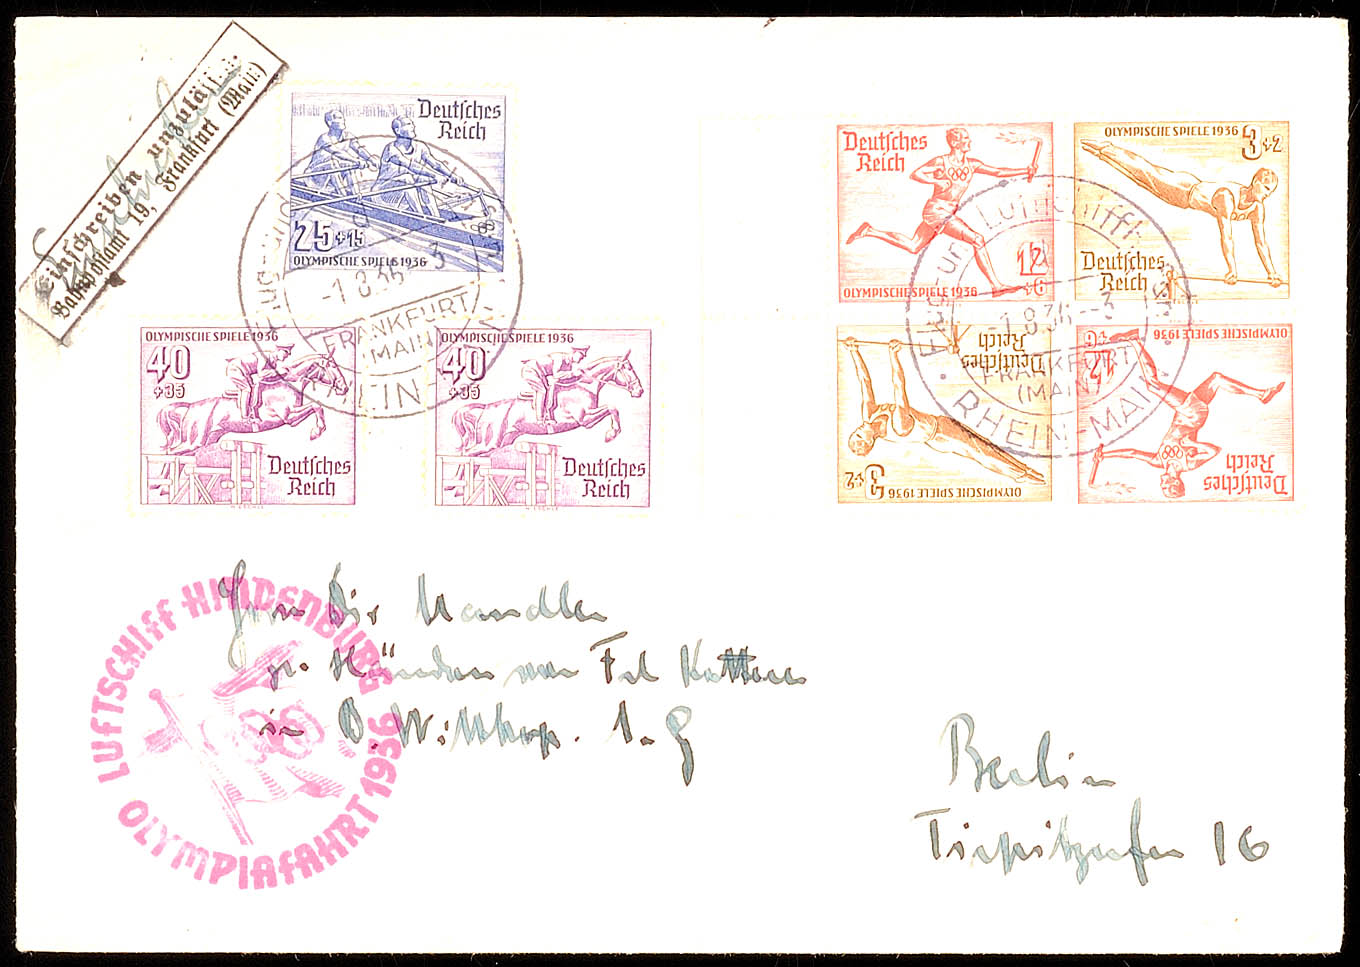 Einschreiben unzulässig
Bahnpostamt 19, Frankfurt (Main)
Deutsches
Reich
25+15
OLYMPISCHE SPIELE 1936
-1.8.36--3
FRANKFURT
(MAIN)
RHEIN-MAIN
OLYMPISCHE SPIELE 1936
40
+35
Deutsches
Reich
OLYMPISCHE SPIELE 1936
40
+35
Deutsches
Reich
Deutsches
Reich
12
+6
OLYMPISCHE SPIELE 1936
OLYMPISCHE SPIELE 1936
3+2
Deutsches
Reich
Deutsches
Reich
3+2
OLYMPISCHE SPIELE 1936
OLYMPISCHE SPIELE 1936
12
+6
Deutsches
Reich
Flug- u. Luftschiffh.
-1.8.36--3
FRANKFURT
(MAIN)
RHEIN-MAIN
LUFTSCHIFF HINDENBURG
OLYMPIAFAHRT 1936
Händen von Frl
in
Berlin
Tirpitzufer 16